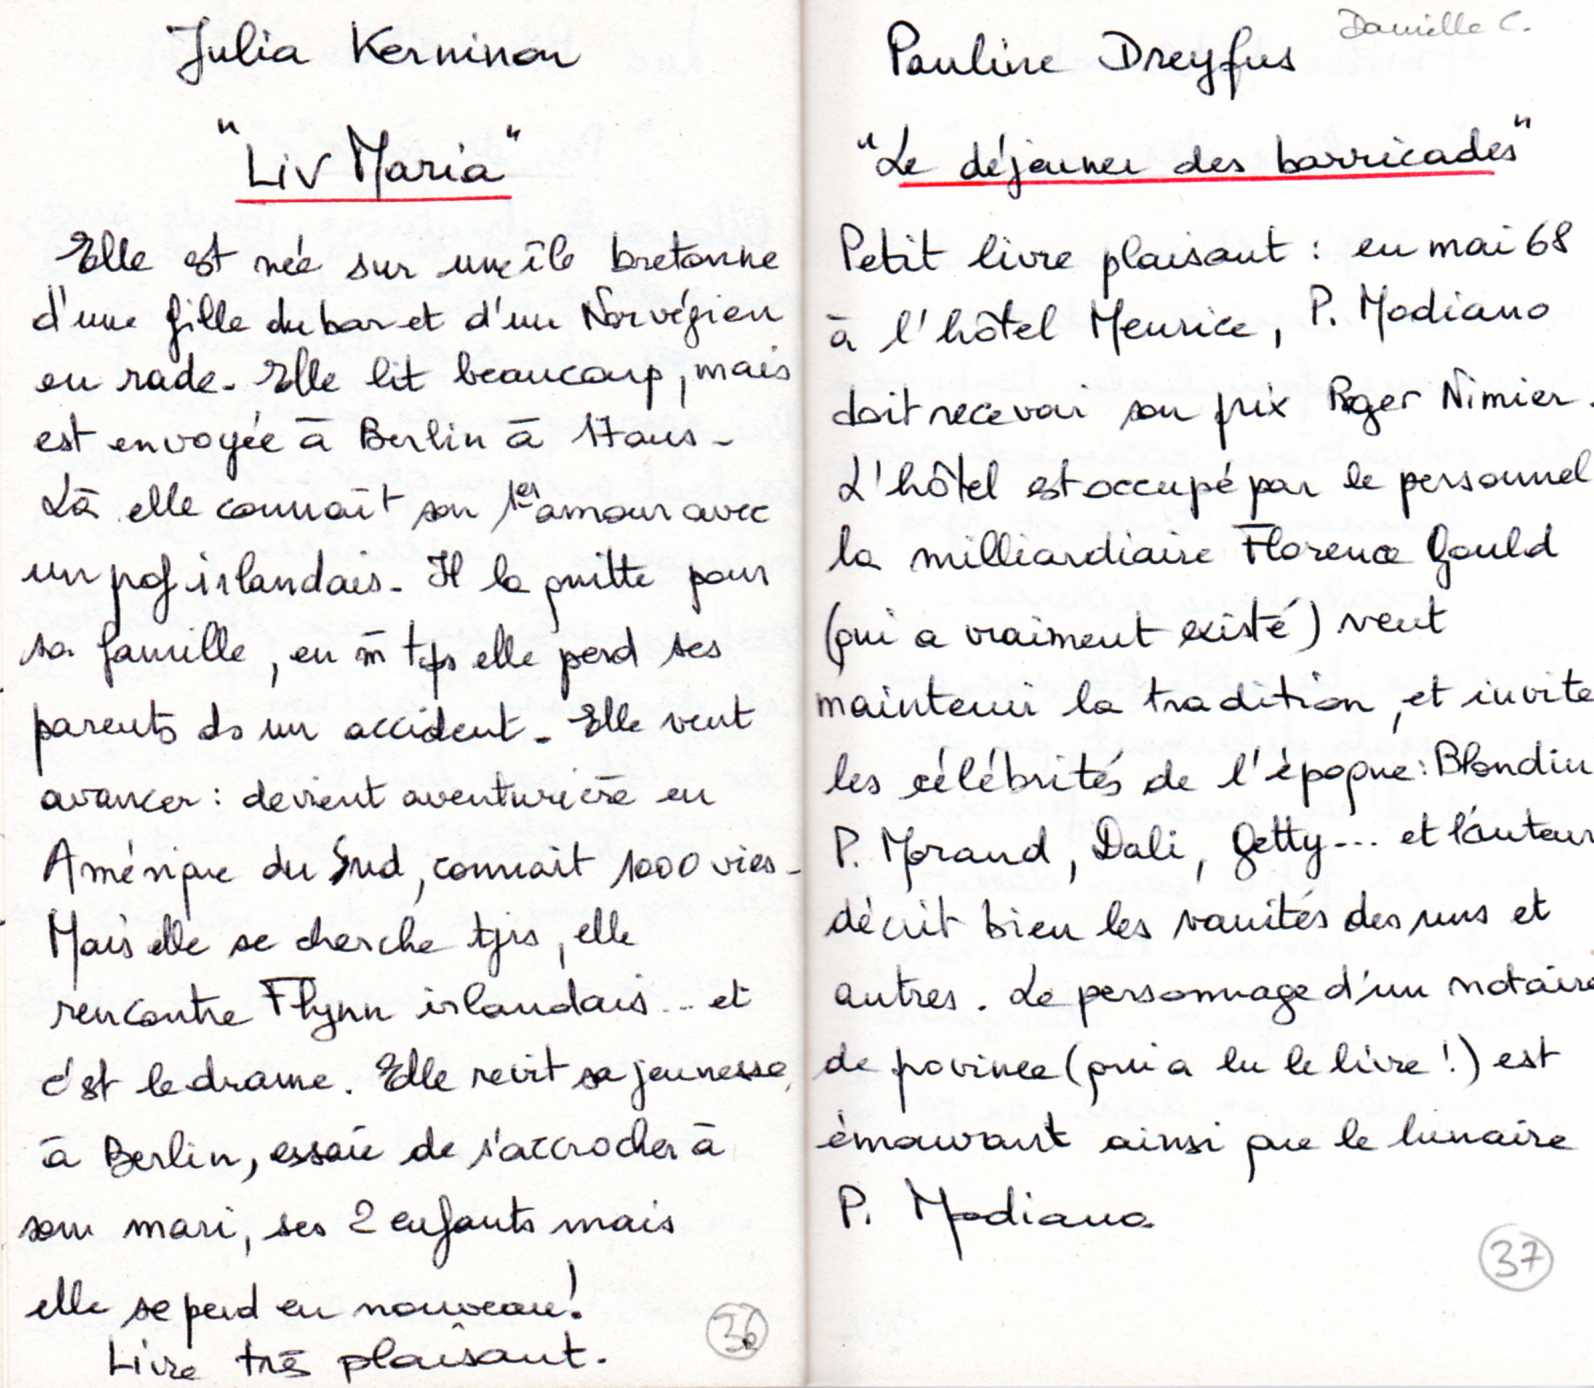 Julia Kerninon
"Liv Maria"
Elle est née sur une île bretonne
d'une fille du bar et d'un Norvégien
en rade. Elle lit beaucoup, mais
est envoyée à Berlin à 17 ans -
Là elle connaît son 1er amour avec
un prof irlandais. Il la quitte pour
sa famille, en m̄ tps elle perd ses
parents ds un accident - Elle veut
avancer : devient aventurière en
Amérique du Sud, connait 1000 vies -
Mais elle se cherche tjrs, elle
rencontre Flynn irlandais... et
c'est le drame. Elle revit sa jeunesse
à Berlin, essaie de s'accrocher à
son mari, ses 2 enfants mais
elle se perd en nouveau!
Livre très plaisant.
36
Danielle C.
Pauline Dreyfus
"Le déjeuner des barricades"
Petit livre plaisant : en mai 68
à l'hôtel Meurice, P. Modiano
doit recevoir son prix Roger Nimier.
L'hôtel est occupé par le personnel
la milliardiaire Florence Gould
(qui a vraiment existé) veut
maintenir la tradition, et invite
les célébrités de l'époque : Blondin
P. Morand, Dali, Getty... et l'auteur
décrit bien les vanités des uns et
autres. Le personnage d'un notaire
de province (qui a lu le livre !) est
émouvant ainsi que le lunaire
P. Modiano
37